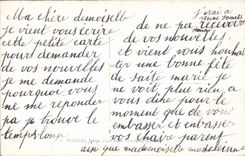 Ma chère demoiselle
je vient vous écrire
cette petite carte
pour demander
de vos nouvelles
je me demande
pourquoi vous
ne me reponder
pas je trouve le
temps long
de ne pas recuvoir
de vos nouvelles
et vient vous souhai
ter une bonne fête
de saite marie je
ne voit plus rien a
vous dire pour le
moment que de vous
embrasser et enbrasser
vos chaire parent
ainsi que mademoiselle madeleine